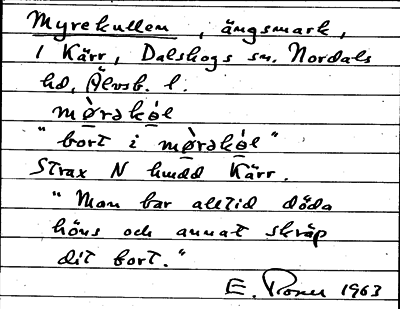 Myrekullen, ängsmark,
1 Kärr, Dalskogs sn. Nordals
hd, Älvsb. l.
mø̀rəkòl̵e
"bort i mø̀rəkòl̵e"
Strax N huvud Kärr.
"Man bar alltid döda
höns och annat skräp
dit bort."
E. 1963